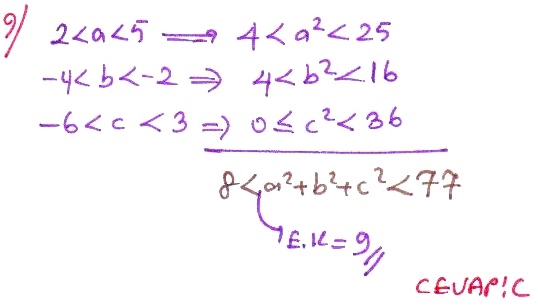 9/ 2<a<5 ⟹ 4<a²<25
-4<b<-2 ⇒ 4<b²<16
-6<c<3 ⇒ 0≤c²<36
8<a²+b²+c²<77
E.K=9//
CEVAP:C